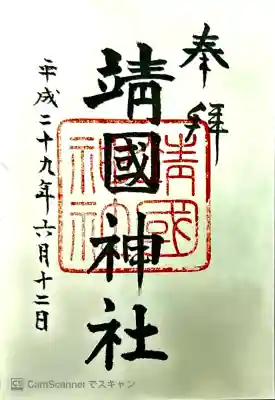 奉拝
靖國神社
靖國
神社
平成二十九年六月十二日
CS CamScanner でスキャン